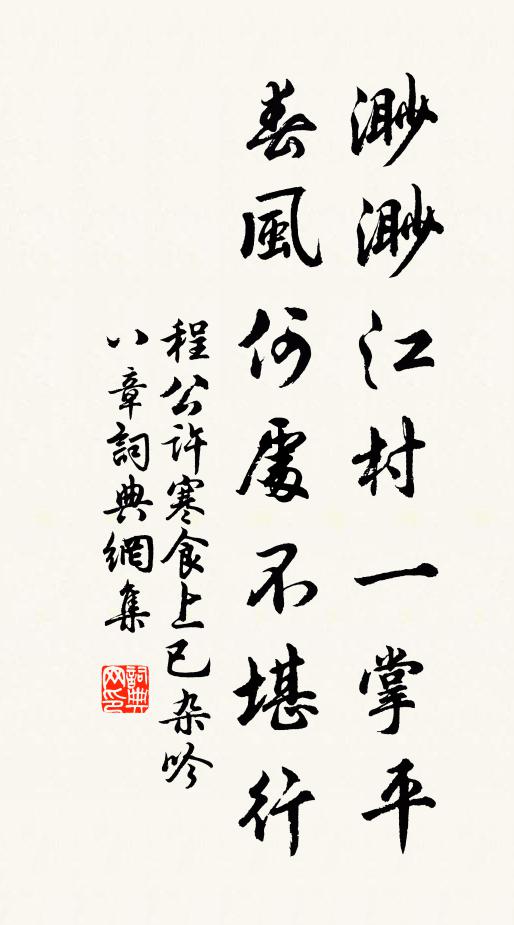 渺渺江村一掌平
春風何處不堪行
程公許寒食上巳杂吟
八章詞典網集
詞典网印